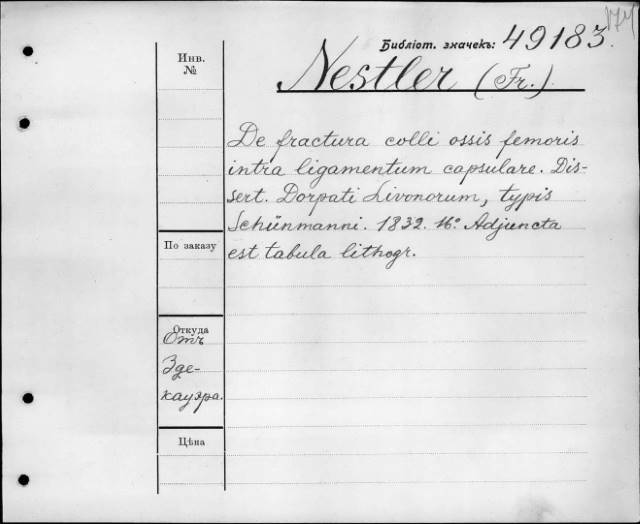 174
Библіот. значекъ: 49183.
Инв.
№
Nestler (Fr.)
De fractura colli ossis femoris
intra ligamentum capsulare. Dis-
sert. Dorpati Livonorum, typis
Schünmanni. 1832. 16° Adjuncta
est tabula lithogr.
По заказу
Откуда
Отъ
Зде-
кауэра.
Цѣна